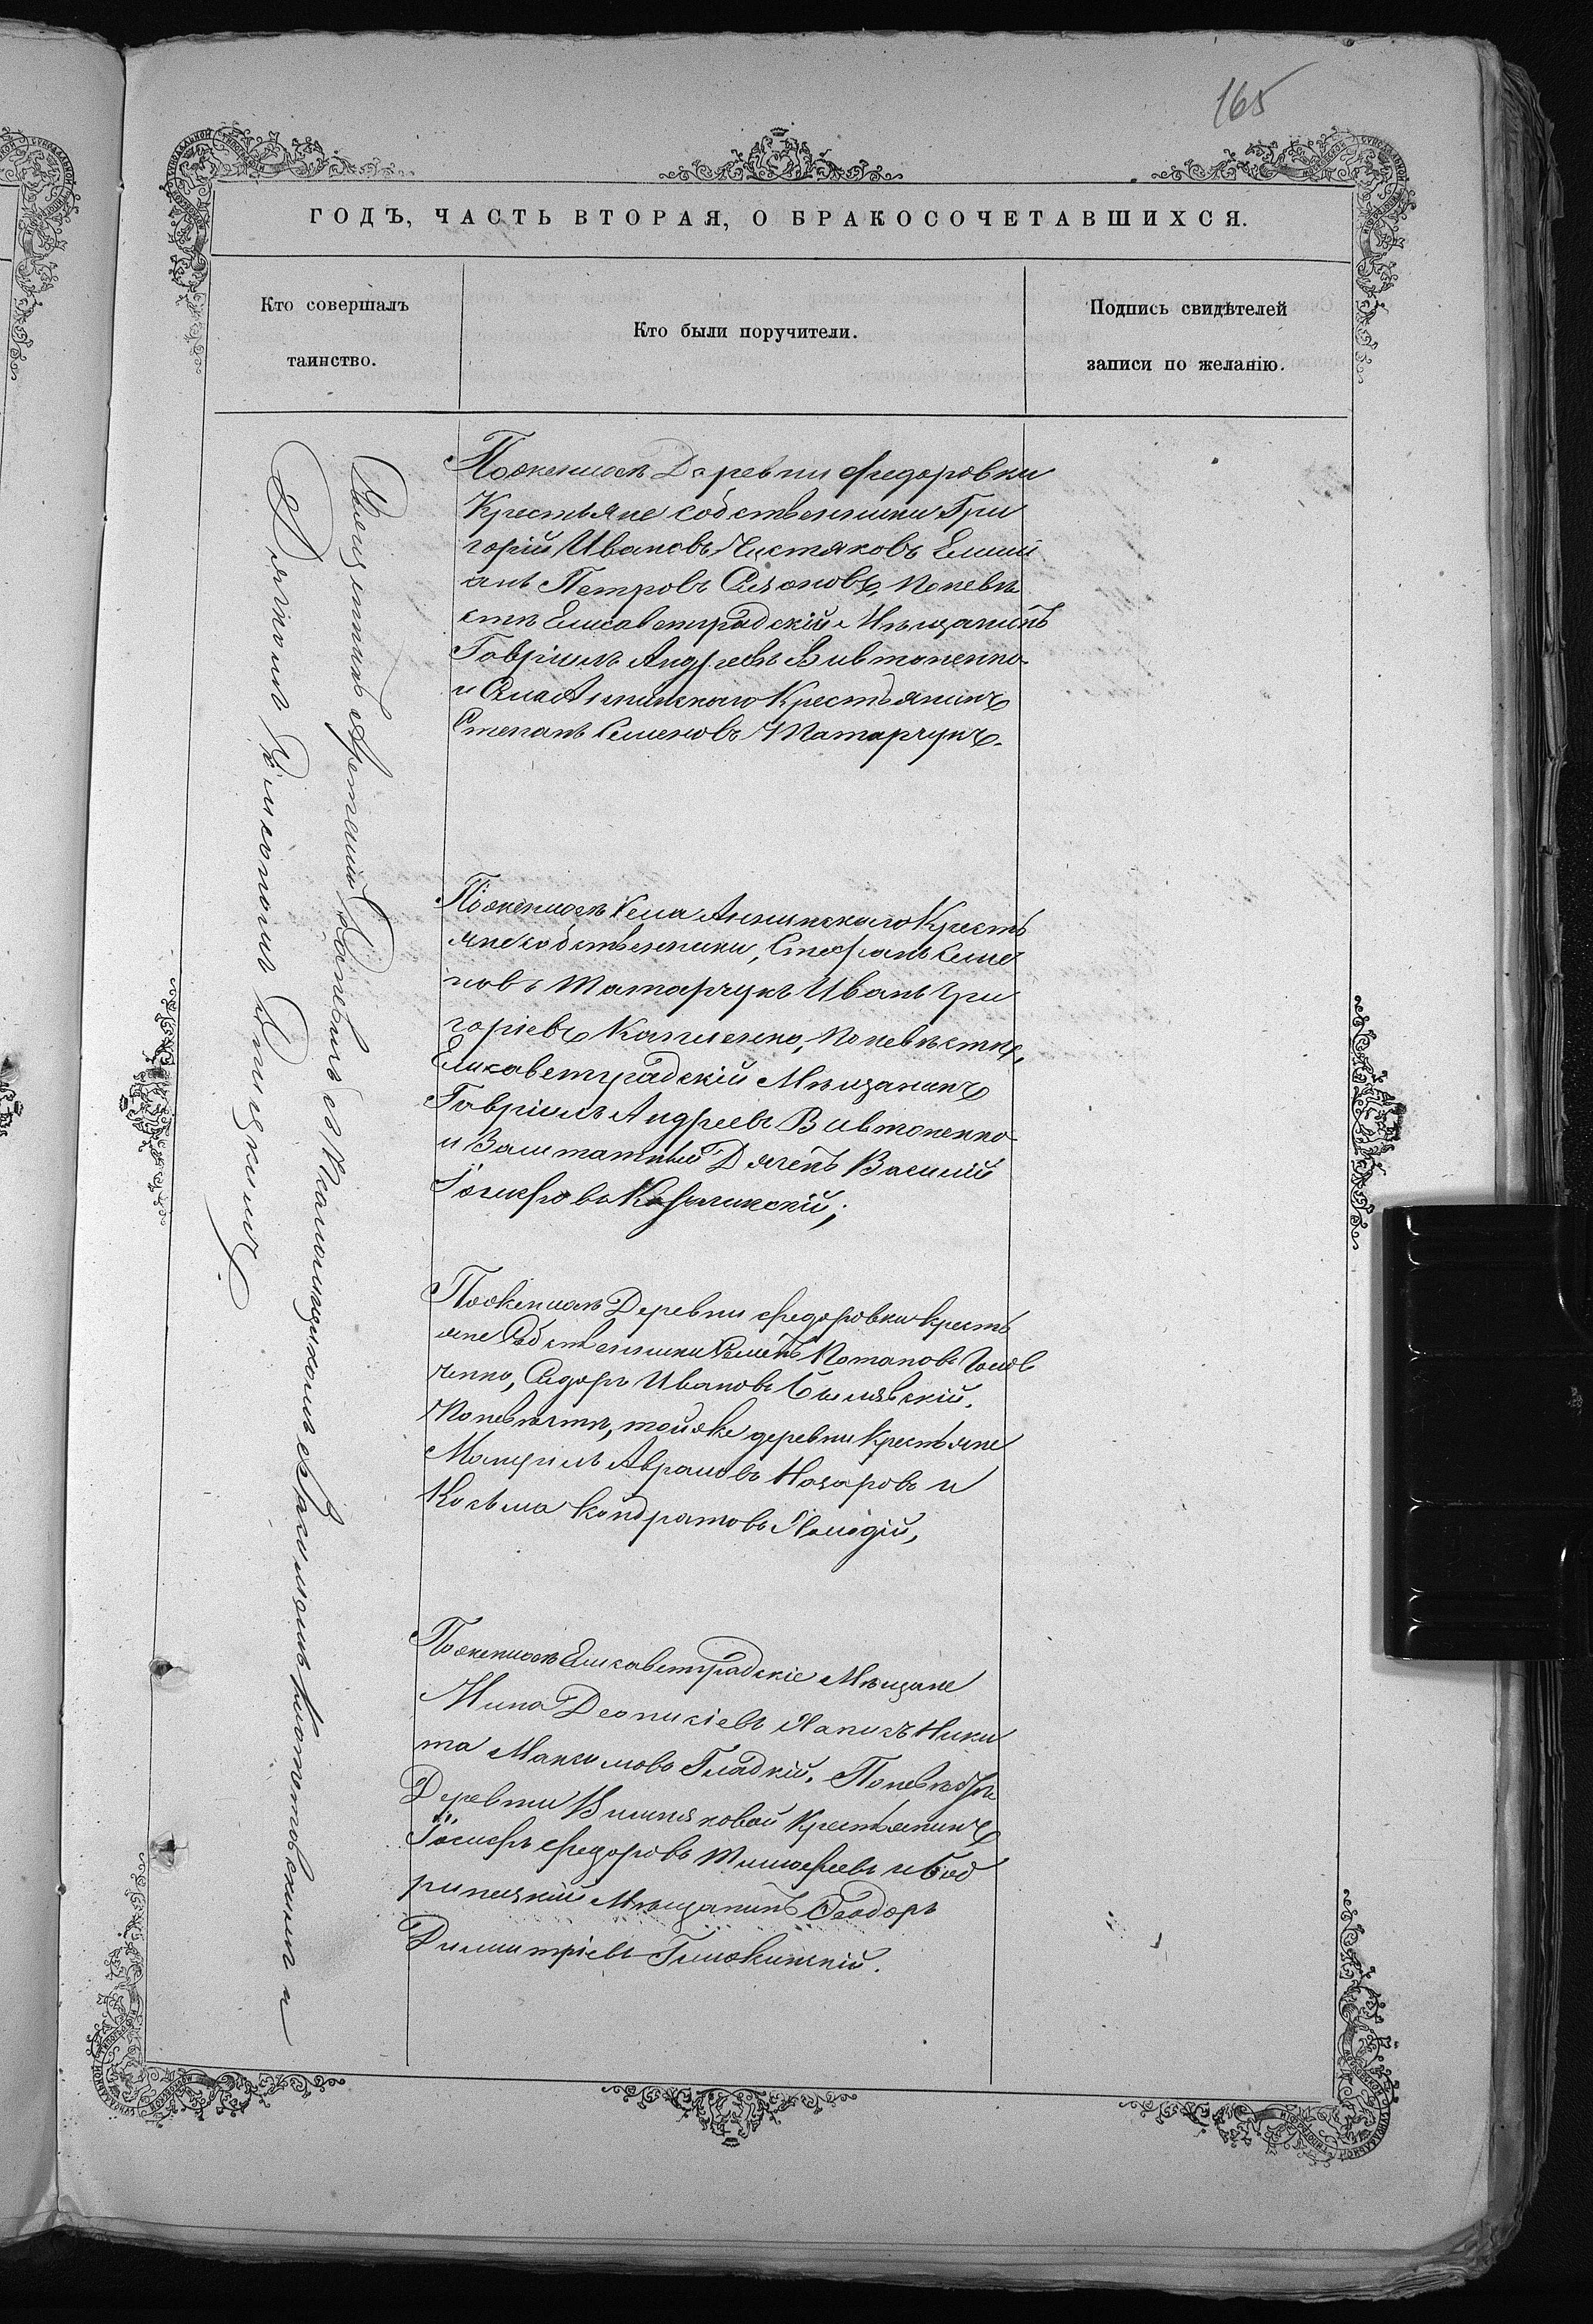 165
ГОДЪ, ЧАСТЬ ВТОРАЯ, О БРАКОСОЧЕТАВШИХСЯ.
Кто совершалъ
таинство.
Кто были поручители.
Подпись свидѣтелей
записи по желанію.
Священникъ Артемій съ Псаломщикомъ и
Дьякомъ
По женихѣ Деревни Федоровки
Крестьяне собственники Гри
горій Ивановъ Чистяковъ Емили
анъ Петровъ Сизоновъ, По невѣ
стѣ Елисаветградскій Мѣщанинъ
Гавріилъ Андреевъ Вивтоненко
и Села Аннинскаго Крестьянинъ
Степанъ Семеновъ Татарчукъ.
По женихѣ Села Аннинскаго Кресть
яне собственники, Стефанъ Семе
новъ Татарчукъ Иванъ Гри
горіевъ По невѣстѣ,
Елисаветградскій Мѣщанинъ
Гавріилъ Андреевъ Вивтоненко
и Заштатный Дячекъ Василій
Іосифовъ
По женихѣ Деревни Федоровки Кресть
яне Собственники Семенъ Потаповъ Голов
ченко, Сидоръ Ивановъ
По невѣстѣ, той же деревни Крестьяне
Аврамовъ Назаровъ и
Козьма Кондратовъ
По женихѣ Елисаветградскіе Мѣщане
Мина Ники
та Максимовъ Гладкій. По невѣстѣ
Деревни Крестьянинъ
Іосифъ Федоровъ Тимофеевъ и Боб
ринецкій Мѣщанинъ Феодоръ
Димитріевъ